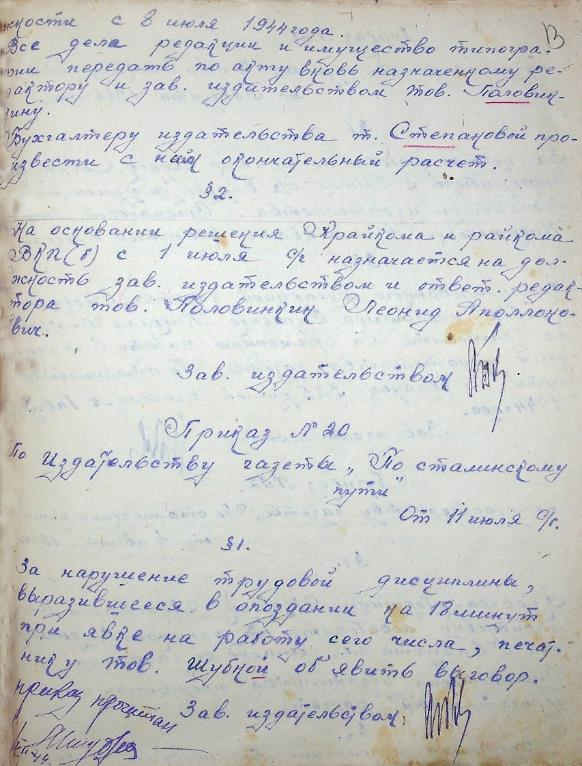 13
жности с 8 июля 1944 года.
Все дела редакции и имущество типогра-
фии передать по акту вновь назначенному ре-
дактору и зав. издательством тов. Половин-
кину.
Бухгалтеру издательства т. Степановой про-
извести с ним окончательный расчет.
§2.
На основании решения Крайкома и райкома
ВКП(б) с 1 июля с/г назначается на дол-
жность зав. издательством и ответ. редак-
тора тов. Половинкин Леонид Аполлоно-
вич.
Зав. издательством
Приказ N 20
По Издательству газеты „По сталинскому
пути"
От 11 июля с/г.
§1.
За нарушение трудовой дисциплины,
выразившееся в опоздании на 18 минут
при явке на работу сего числа, печат-
нику тов. Шубкой об'явить выговор.
приказ прочитан
Зав. издательством: